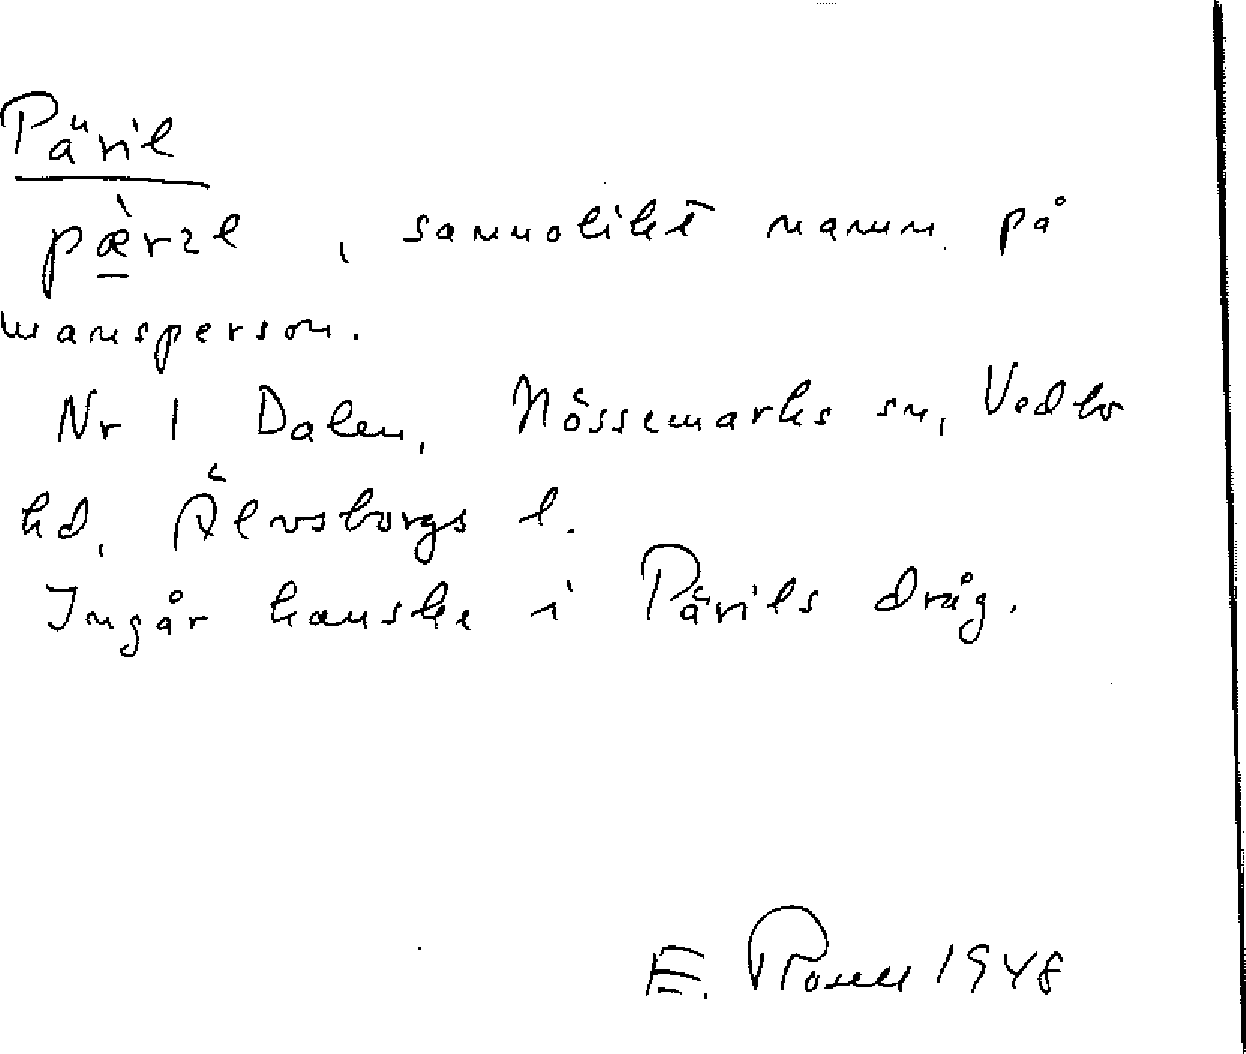 Päril
pæ̀rɩl, sannolikt namn på
mansperson.
Nr 1 Dalen, Nössemarks sn, Vedbo
hd, Älvsborgs l.
Ingår kanske i Pärils dråg.
E. Rosell 1948